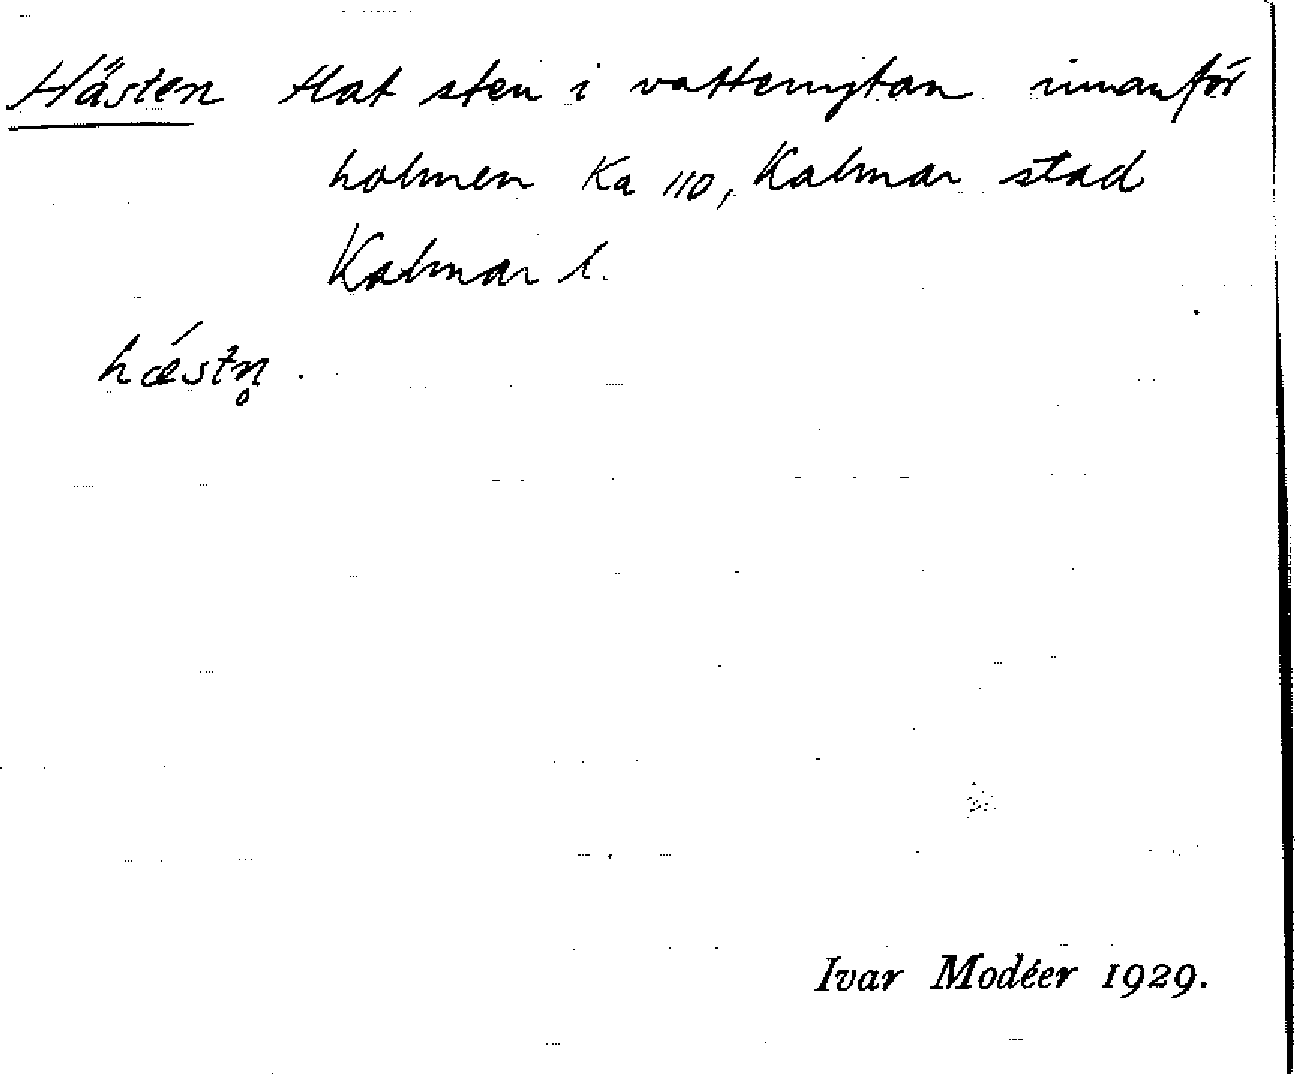 Hästen flat sten i vattenytan innanför
holmen Ka 110, Kalmar stad
Kalmar l.
hǽstn̥.
Ivar Modéer 1929.